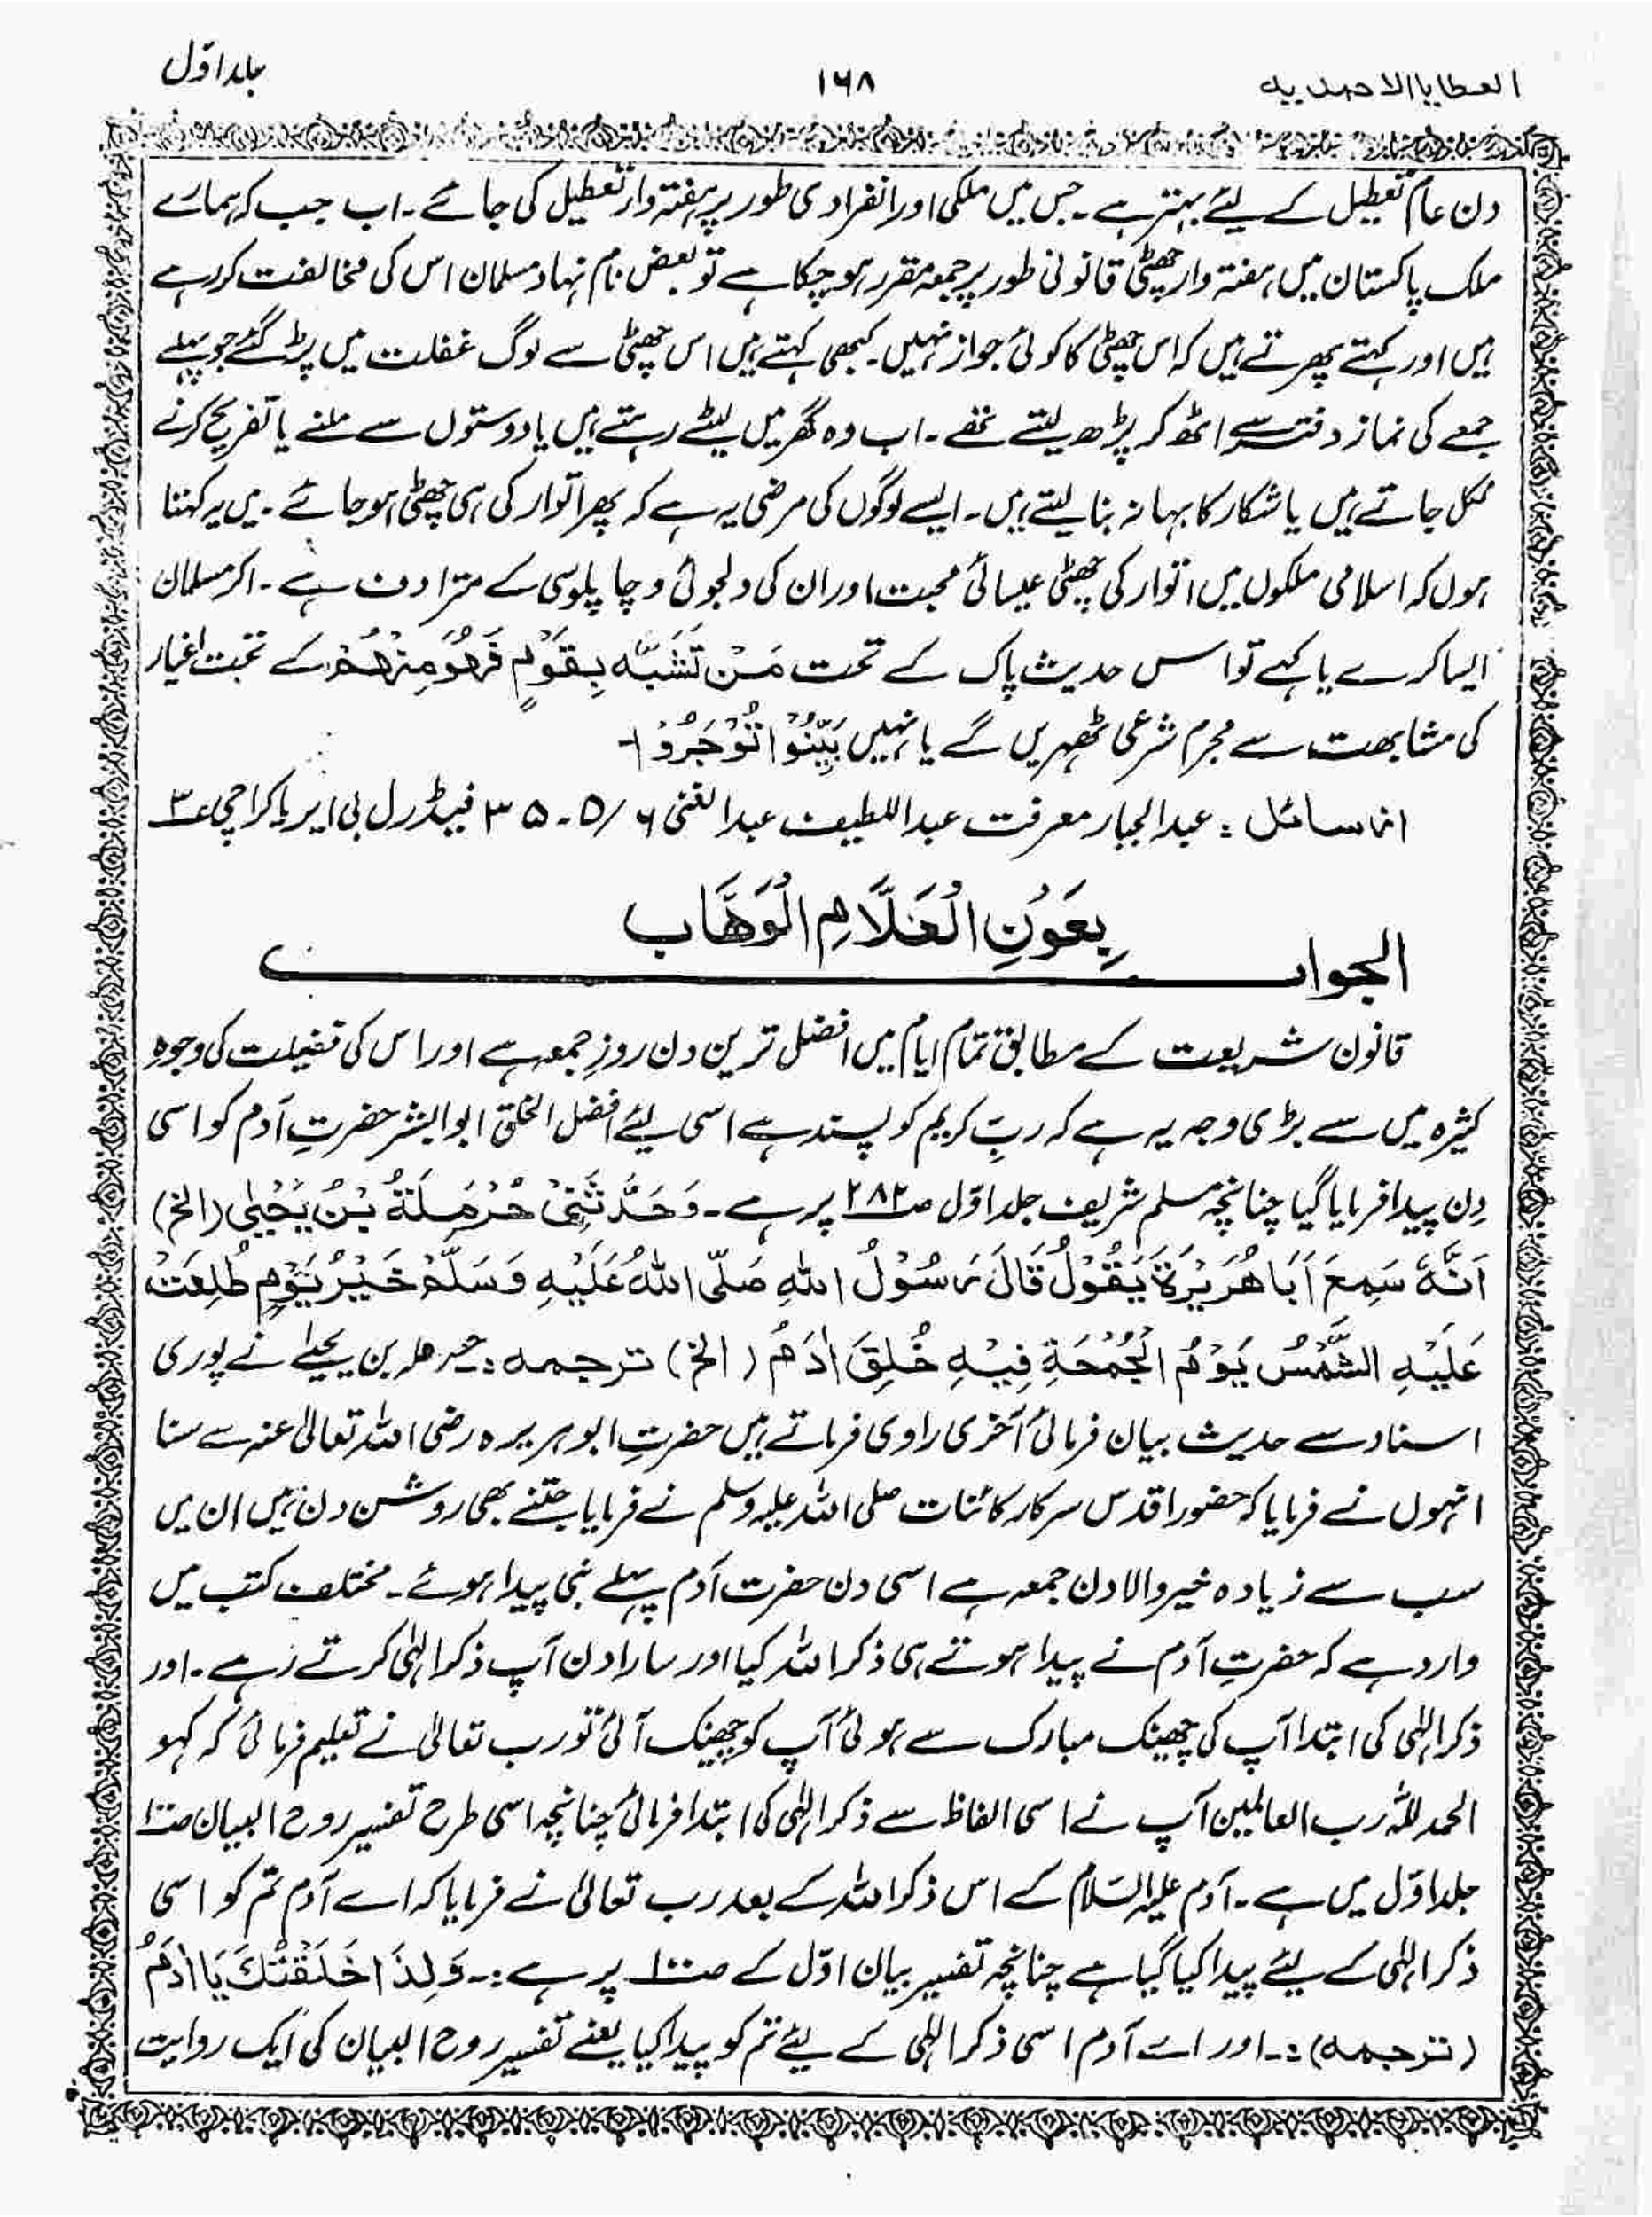 العطایا الاحمدیہ
۱۶۸
جلد اوّل
دن عام تعطیل کے لیئے بہتر ہے۔ جس میں ملکی اور انفرادی طور پر ہفتہ وار تعطیل کی جائے۔ اب جب کہ ہمارے
ملک پاکستان میں ہفتہ وار چھٹی قانونی طور پر جمعہ مقرر ہو چکا ہے تو بعض نام نہاد مسلمان اس کی مخالفت کر رہے
ہیں اور کہتے پھرتے ہیں کہ اس چھٹی کا کوئی جواز نہیں۔ کبھی کہتے ہیں اس چھٹی سے لوگ غفلت میں پڑ گئے جو پہلے
جمعے کی نماز دفتر سے اٹھ کر پڑھ لیتے تھے۔ اب وہ گھر میں لیٹے رہتے ہیں یا دوستوں سے ملنے یا تفریح کرنے
نکل جاتے ہیں یا شکار کا بہانہ بنا لیتے ہیں۔ ایسے لوگوں کی مرضی یہ ہے کہ پھر اتوار کی ہی چھٹی ہو جائے۔ میں یہ کہتا
ہوں کہ اسلامی ملکوں میں اتوار کی چھٹی عیسائی محبت اور ان کی دلجوئی و چاپلوسی کے مترادف ہے۔ اگر مسلمان
ایسا کرے یا کہے تو اس حدیث پاک کے تحت مَنْ تَشَبَّهَ بِقَوْمٍ فَهُوَ مِنْهُمْ کے تحت اغیار
کی مشابہت سے مجرم شرعی ٹھہریں گے یا نہیں بَيِّنُوْا تُوْجَرُوْا۔
السائل : عبدالجبار معرفت عبداللطیف عبدالغنی ۶/۵۔۳۵ فیڈرل بی ایریا کراچی ۳
بِعَوْنِ الْعَلَّامِ الْوَهَّابِ
الجواب
قانون شریعت کے مطابق تمام ایام میں افضل ترین دن روزِ جمعہ ہے اور اس کی فضیلت کی وجوہِ
کثیرہ میں سے بڑی وجہ یہ ہے کہ ربِّ کریم کو پسند ہے اسی لیئے افضل الخلق ابوالبشر حضرتِ آدم کو اسی
دِن پیدا فرمایا گیا چنانچہ مسلم شریف جلد اوّل صـ ۲۸۲ پر ہے۔ وَحَدَّثَنِیْ حُرْمَلَةُ بْنُ يَحْيٰى (الخ)
اَنَّهٗ سَمِعَ اَبَا هُرَيْرَةَ يَقُوْلُ قَالَ رَسُوْلُ اللهِ صَلَّى اللهُ عَلَيْهِ وَسَلَّمَ خَيْرُ يَوْمٍ طُلِعَتْ
عَلَيْهِ الشَّمْسُ يَوْمُ الْجُمْعَةِ فِيْهِ خُلِقَ اٰدَمُ (الخ) ترجمہ:۔ حرملہ بن یحیٰے نے پوری
اسناد سے حدیث بیان فرمائی آخری راوی فرماتے ہیں حضرتِ ابوہریرہ رضی اللہ تعالیٰ عنہ سے سنا
انہوں نے فرمایا کہ حضور اقدس سرکار کائنات صلی اللہ علیہ وسلم نے فرمایا جتنے بھی روشن دن ہیں ان میں
سب سے زیادہ خیر والا دن جمعہ ہے اسی دن حضرت آدم پہلے نبی پیدا ہوئے۔ مختلف کتب میں
وارد ہے کہ حضرتِ آدم نے پیدا ہوتے ہی ذکر اللہ کیا اور سارا دن آپ ذکر الٰہی کرتے رہے۔ اور
ذکر الٰہی کی ابتدا آپ کی چھینک مبارک سے ہوئی آپ کو چھینک آئی تو رب تعالیٰ نے تعلیم فرمائی کہ کہو
الحمد للّٰہ رب العالمین آپ نے اسی الفاظ سے ذکر الٰہی کی ابتدا فرمائی چنانچہ اسی طرح تفسیر روح البیان صـ۱۰۰
جلد اوّل میں ہے۔ آدم علیہ السّلام کے اس ذکر اللہ کے بعد رب تعالیٰ نے فرمایا کہ اے آدم تم کو اسی
ذکر الٰہی کے لیئے پیدا کیا گیا ہے چنانچہ تفسیر بیان اوّل کے صـ۱۰۰ پر ہے:۔ وَلِذَا خَلَقْتُكَ يَا اٰدَمُ
(ترجمہ):۔ اور اے آدم اسی ذکر الٰہی کے لیئے تم کو پیدا کیا یعنے تفسیر روح البیان کی ایک روایت